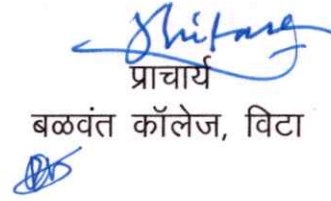 प्राचार्य
बळवंत कॉलेज, विटा